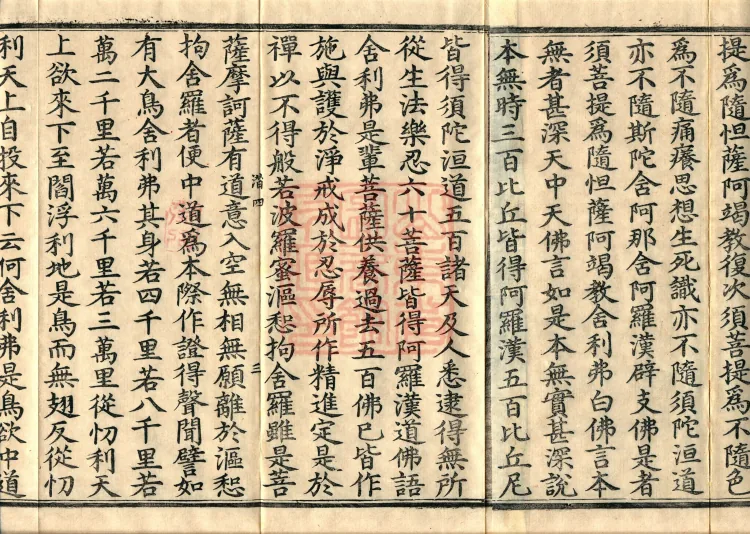 提爲隨怛薩阿竭教復次須菩提爲不隨色
爲不隨痛癢思想生死識亦不隨須陀洹道
亦不隨斯陀舍阿那舍阿羅漢辟支佛是者
須菩提爲隨怛薩阿竭教舍利弗白佛言本
無者甚深天中天佛言如是本無實甚深說
本無時三百比丘皆得阿羅漢五百比丘尼
皆得須陀洹道五百諸天及人悉逮得無所
從生法樂忍六十菩薩皆得阿羅漢道佛語
舍利弗是輩菩薩供養過去五百佛已皆作
施與護於淨戒成於忍辱所作精進定是於
禪以不得般若波羅蜜漚惒拘舍羅雖是菩
潜四 三
薩摩訶薩有道意入空無相無願離於漚惒
拘舍羅者便中道爲本際作證得聲聞譬如
有大鳥舍利弗其身若四千里若八千里若
萬二千里若萬六千里若三萬里從忉利天
上欲來下至閻浮利地是鳥而無翅反從忉
利天上自投來下云何舍利弗是鳥欲中道